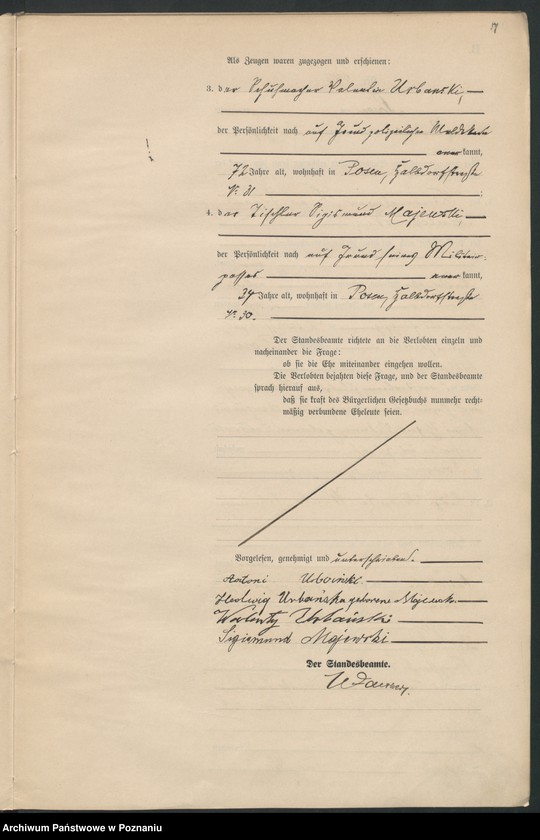 7
Als Zeugen waren zugezogen und erschienen:
3. der Schuhmacher Valentin Urbanski,
der Persönlichkeit nach auf Grund polizeilicher Meldekarte
anerkannt,
72 Jahre alt, wohnhaft in Posen, Halbdorfstraße
Nr. 31
4. der Tischler Sigismund Majewski,
der Persönlichkeit nach auf Grund seines Militär-
passes anerkannt,
34 Jahre alt, wohnhaft in Posen, Halbdorfstraße
Nr. 30.
Der Standesbeamte richtete an die Verlobten einzeln und
nacheinander die Frage:
ob sie die Ehe miteinander eingehen wollen.
Die Verlobten bejahten diese Frage, und der Standesbeamte
sprach hierauf aus,
daß sie kraft des Bürgerlichen Gesetzbuchs nunmehr recht-
mäßig verbundene Eheleute seien.
Vorgelesen, genehmigt und unterschrieben.
Antoni Urbański
Hedwig Urbańska geborene Majewska
Walenty Urbański
Sigismund Majewski
Der Standesbeamte.
Archiwum Państwowe w Poznaniu